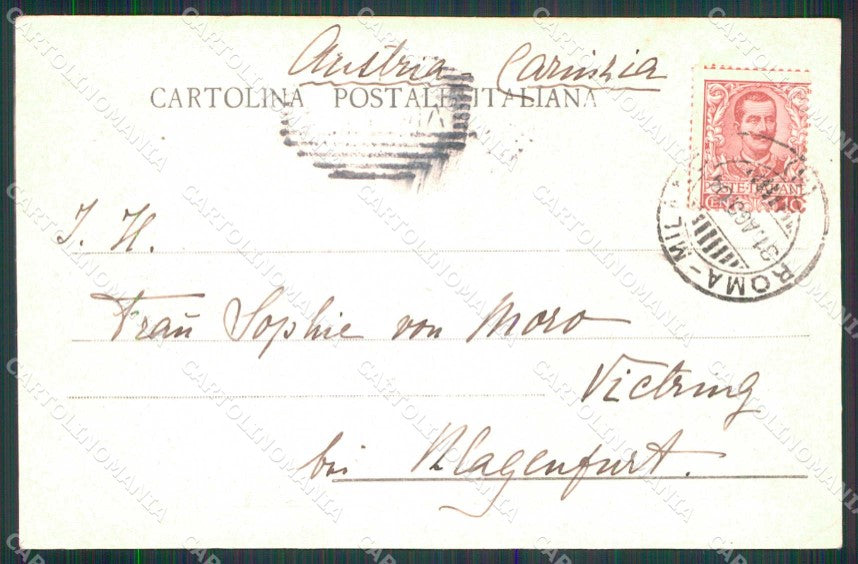 Austria Carinzia
CARTOLINA POSTALE ITALIANA
POSTE ITALIANE
CENT. 10
ROMA-MILANO
31.AGO
I. H.
Fraŭ Sophie von Moro
Victring
bei Klagenfurt.
CARTOLINOMANIA